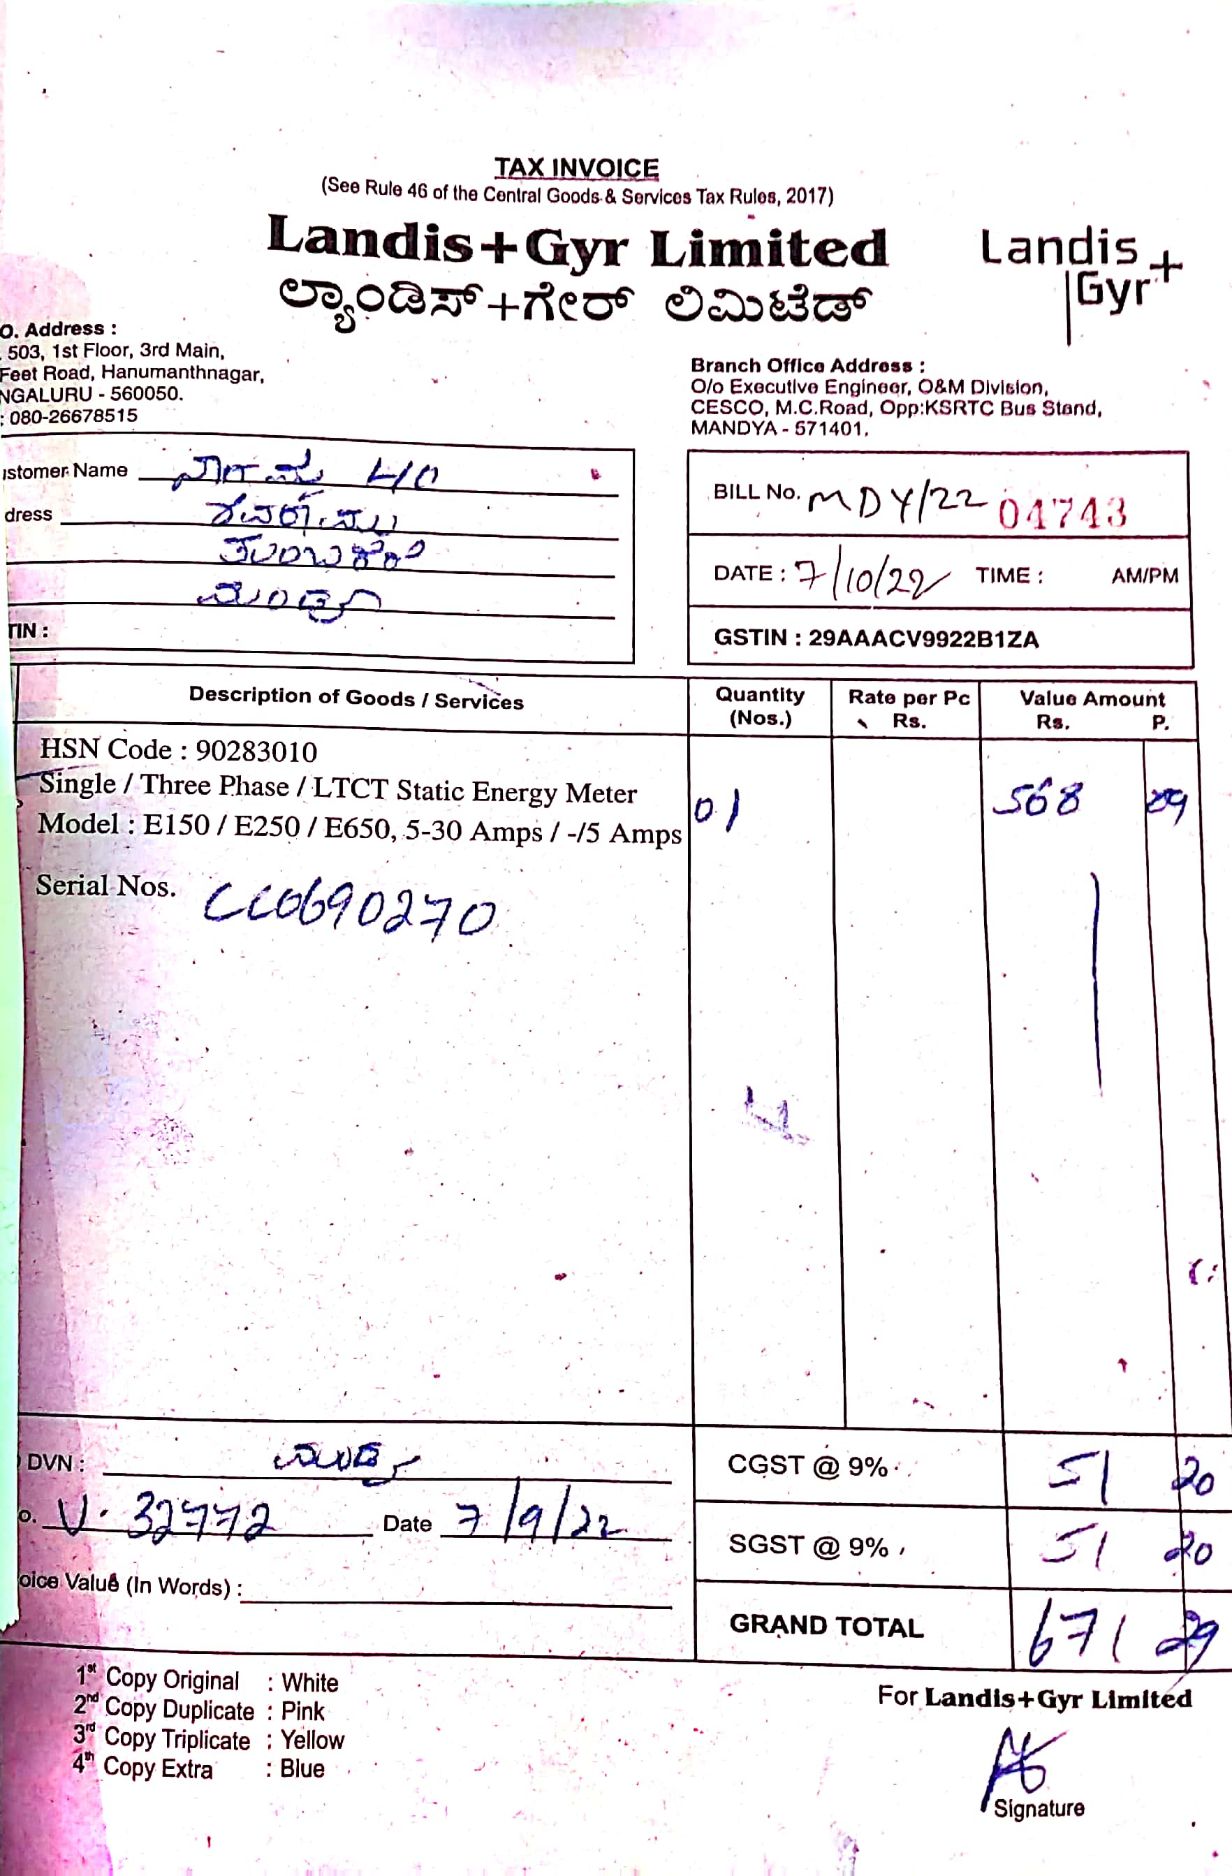 TAX INVOICE
(See Rule 46 of the Central Goods & Services Tax Rules, 2017)
Landis+Gyr Limited
ಲ್ಯಾಂಡಿಸ್+ಗೇರ್ ಲಿಮಿಟೆಡ್
Landis
Gyr+
O. Address :
503, 1st Floor, 3rd Main,
Feet Road, Hanumanthnagar,
NGALURU - 560050.
: 080-26678515
Branch Office Address :
O/o Executive Engineer, O&M Division,
CESCO, M.C.Road, Opp:KSRTC Bus Stand,
MANDYA - 571401.
stomer Name
dress
ಮಂಡ್ಯ
TIN :
BILL No. MDY/22 04743
DATE : 7/10/22 TIME : AM/PM
GSTIN : 29AAACV9922B1ZA
Description of Goods / Services Quantity (Nos.) Rate per Pc Rs. Value Amount Rs. P.
HSN Code : 90283010
Single / Three Phase / LTCT Static Energy Meter 01 568 09
Model : E150 / E250 / E650, 5-30 Amps / -/5 Amps
Serial Nos. CC0690270
DVN : ಮಂಡ್ಯ CGST @ 9% 51 20
o. V. 32772 Date 7/9/22 SGST @ 9% 51 20
oice Value (In Words) :
GRAND TOTAL 671 29
1st Copy Original : White
2nd Copy Duplicate : Pink
3rd Copy Triplicate : Yellow
4th Copy Extra : Blue
For Landis+Gyr Limited
Signature